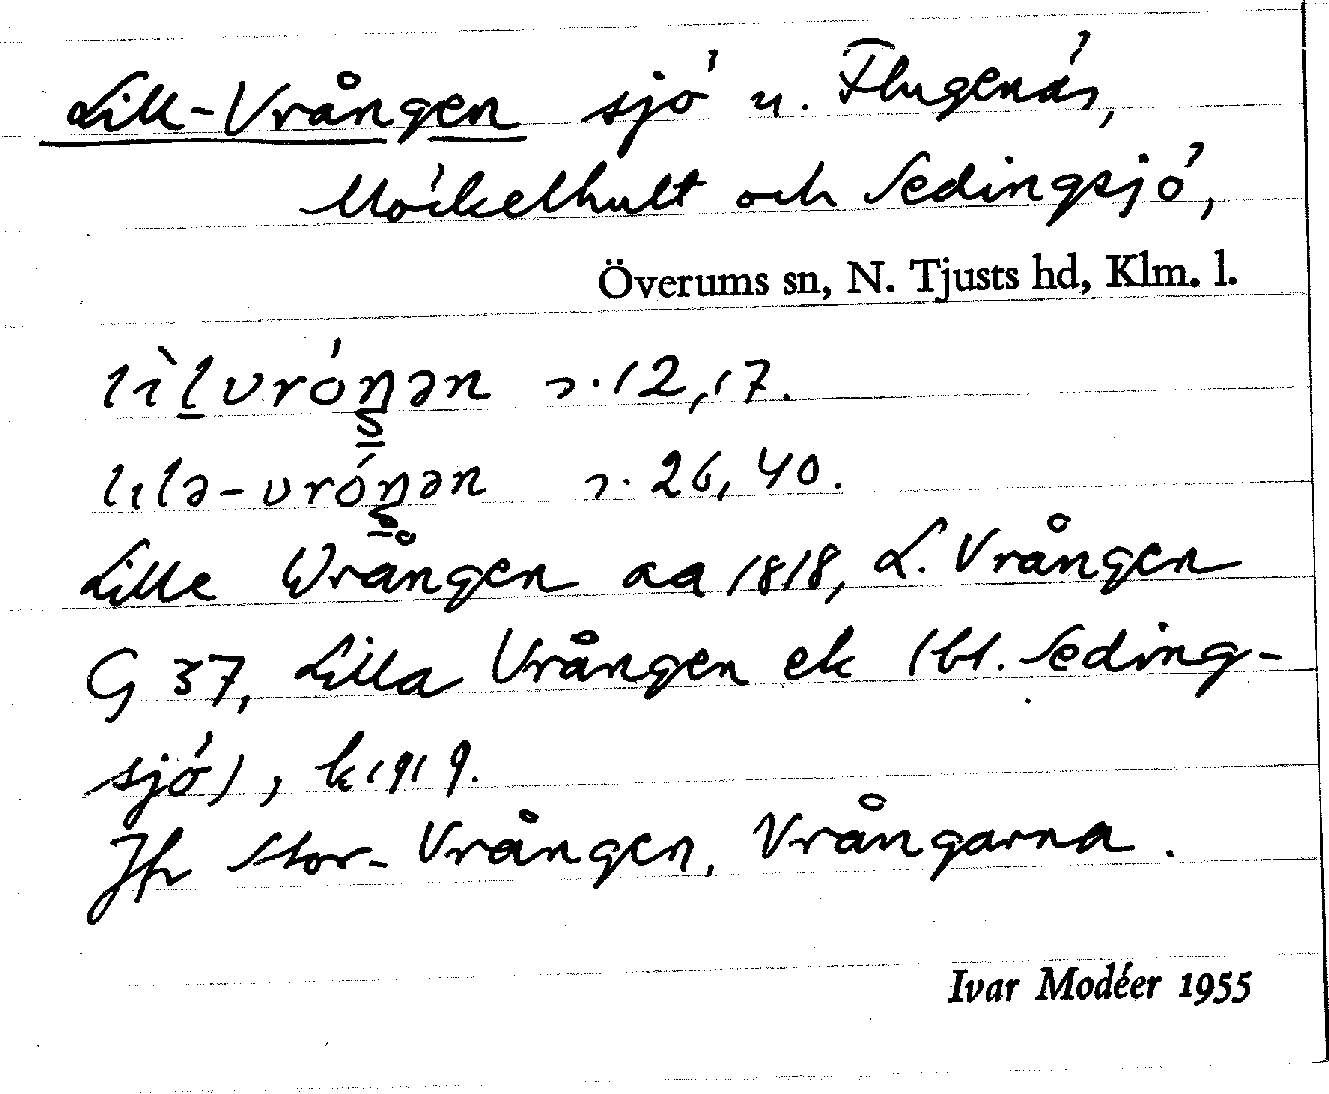 Lill-Vrången sjö u. Flugenäs,
Möckelhult och Sedingsjö,
Överums sn, N. Tjusts hd, Klm. l.
s. 12, 17.
s. 26, 40.
Lille Wrången aa 1818, L. Vrången
G 37, Lilla Vrången ek (bl. Seding-
sjö), k 1919.
Jfr Stor-Vrången, Vrångarna.
Ivar Modéer 1955